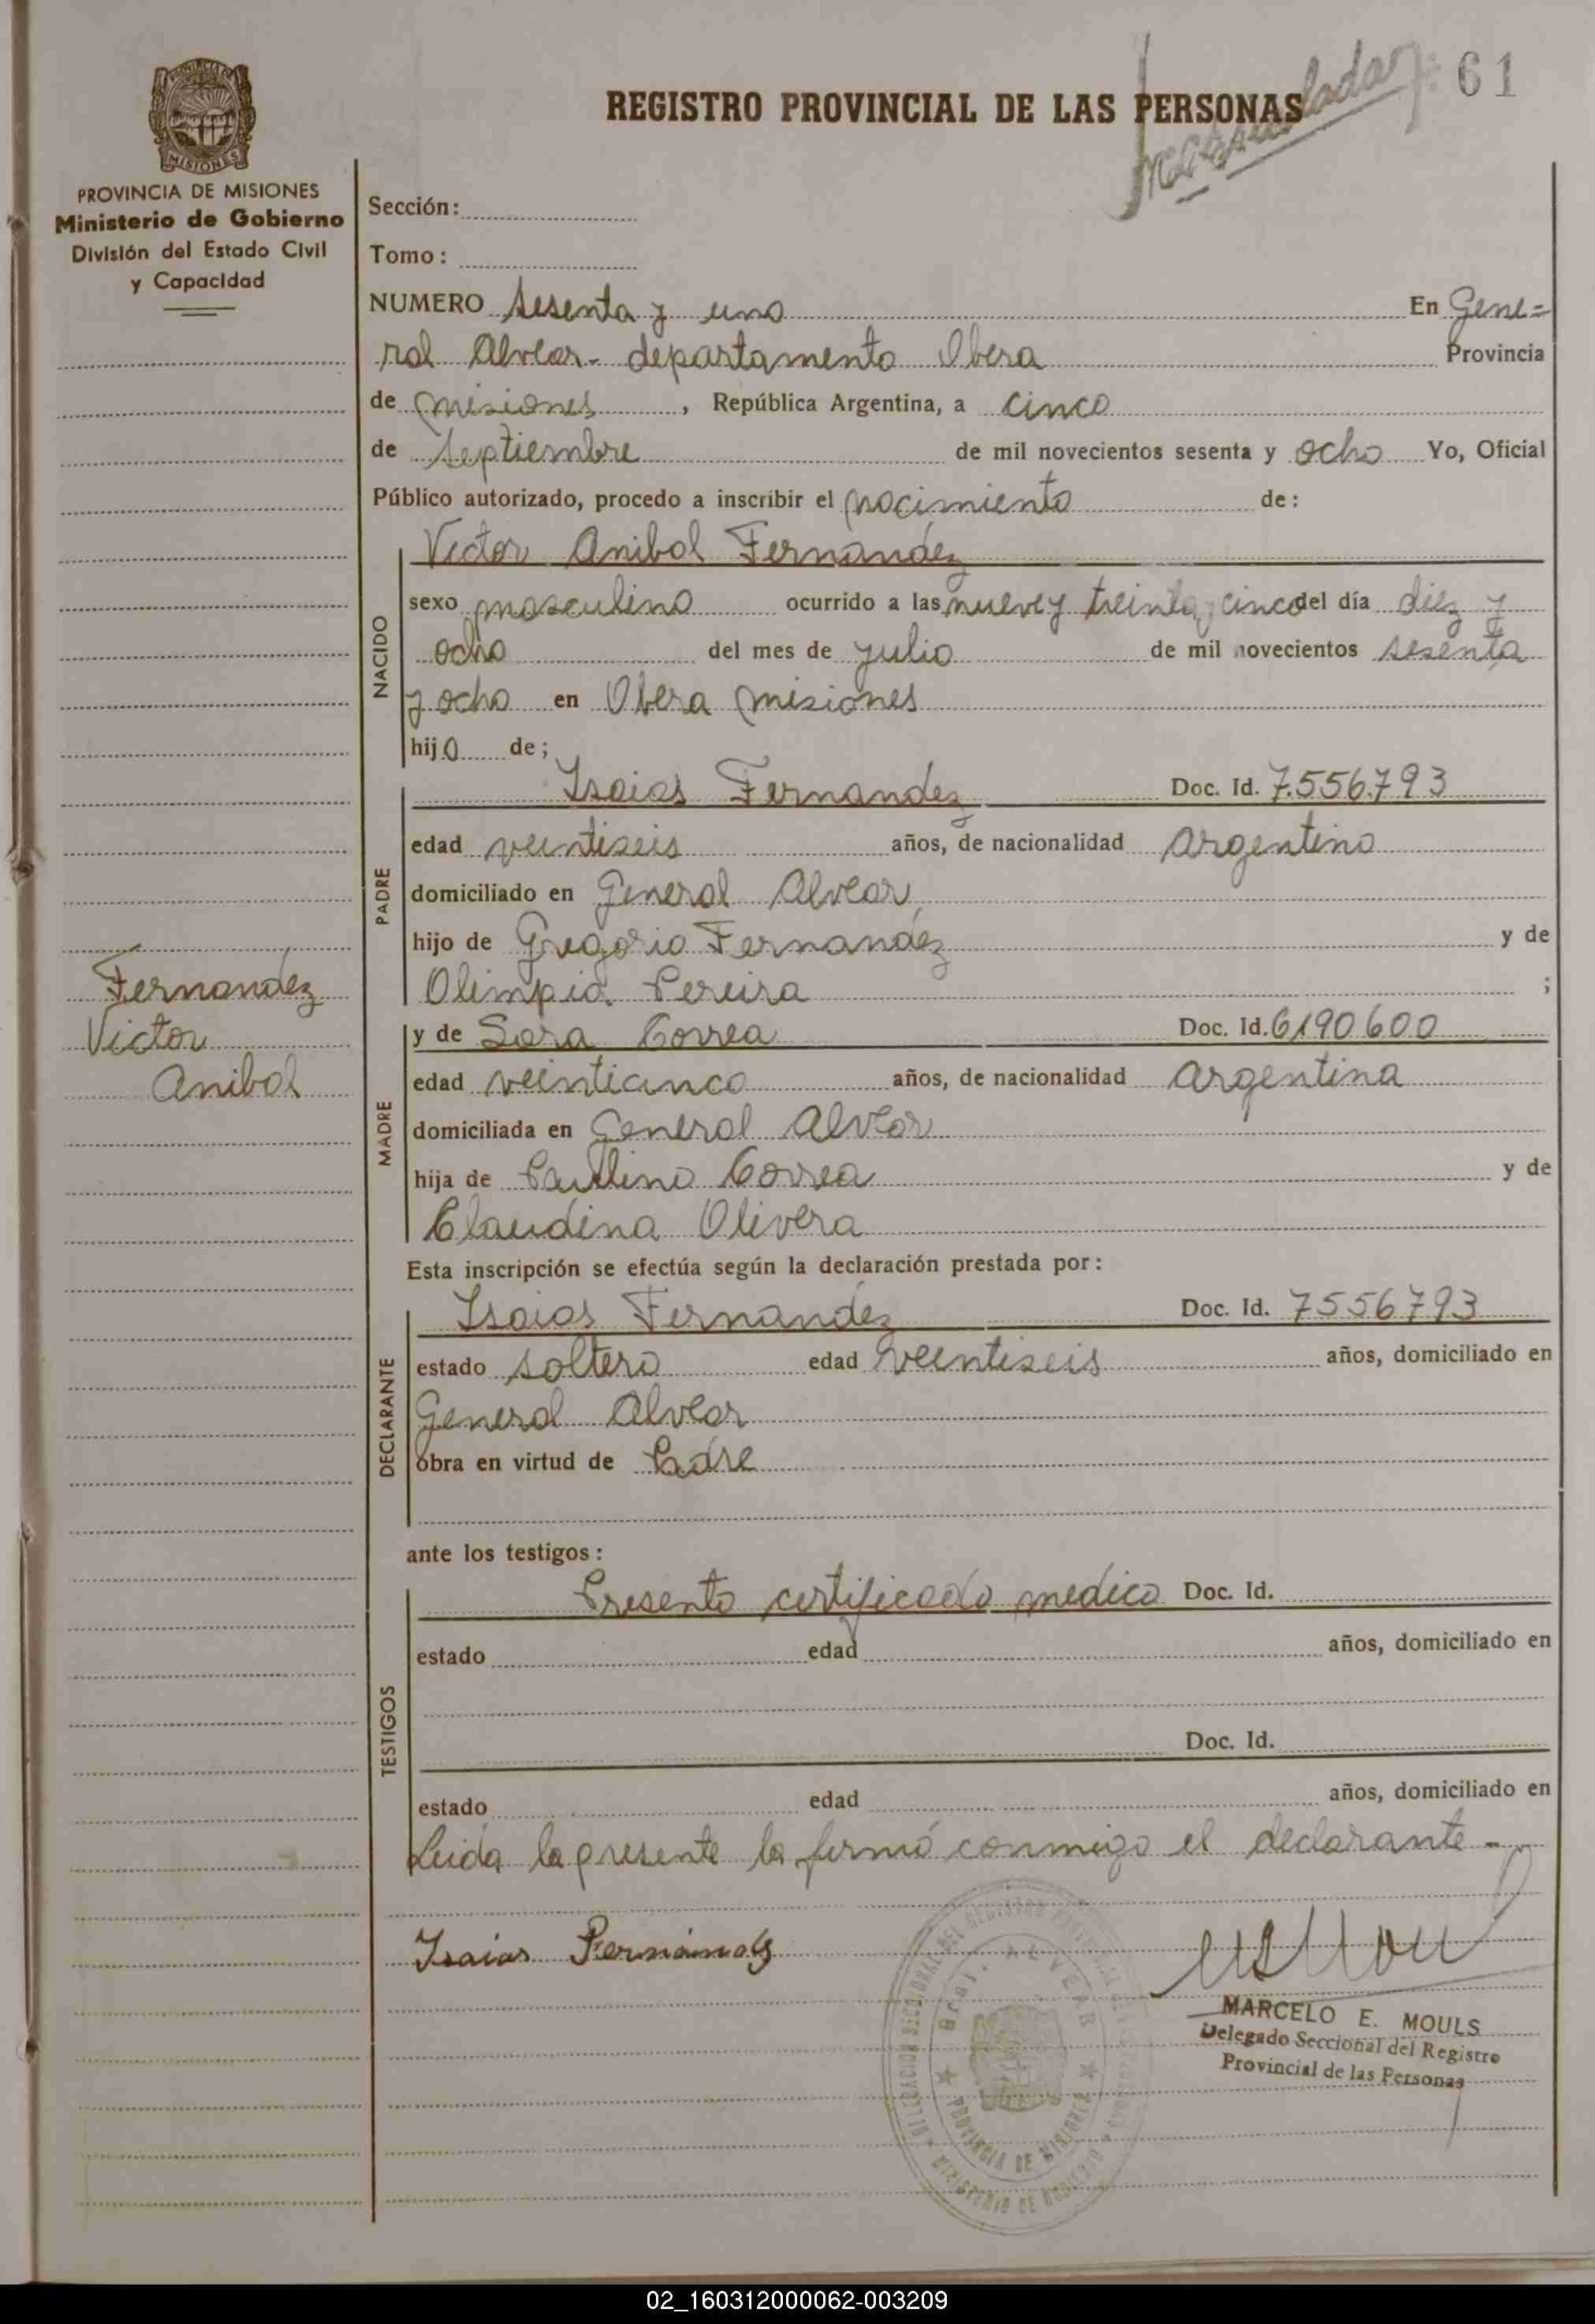 61
REGISTRO PROVINCIAL DE LAS PERSONAS
MISIONES
PROVINCIA DE MISIONES
Ministerio de Gobierno
División del Estado Civil
y Capacidad
Sección:
Tomo:
NUMERO sesenta y uno En Gene=
ral Alvear- departamento Obera Provincia
de misiones, República Argentina, a cinco
de septiembre de mil novecientos sesenta y ocho Yo, Oficial
Público autorizado, procedo a inscribir el nacimiento de:
Victor Anibal Fernandez
NACIDO
sexo masculino ocurrido a las nueve y treinta y cinco del día diez y
ocho del mes de julio de mil novecientos sesenta
y ocho en Obera misiones
hijo de;
PADRE
Isaias Fernandez Doc. Id. 7.556.793
edad veintiseis años, de nacionalidad argentino
domiciliado en General Alvear
hijo de Gregorio Fernandez y de
Olimpia Pereira ;
Fernandez
Victor
Anibal
MADRE
y de Sara Correa Doc. Id. 6190600
edad veinticinco años, de nacionalidad argentina
domiciliada en General Alvear
hija de Paulino Correa y de
Claudina Olivera
Esta inscripción se efectúa según la declaración prestada por:
DECLARANTE
Isaias Fernandez Doc. Id. 7556793
estado soltero edad veintiseis años, domiciliado en
General Alvear
obra en virtud de Padre
ante los testigos:
TESTIGOS
Presento certificado medico Doc. Id.
estado edad años, domiciliado en
Doc. Id.
estado edad años, domiciliado en
Leida la presente la firmó conmigo el declarante-
Isaias Fernández
Gral. ALVEAR
PROVINCIA DE MISIONES
MARCELO E. MOULS
Delegado Seccional del Registro
Provincial de las Personas
02_160312000062-003209